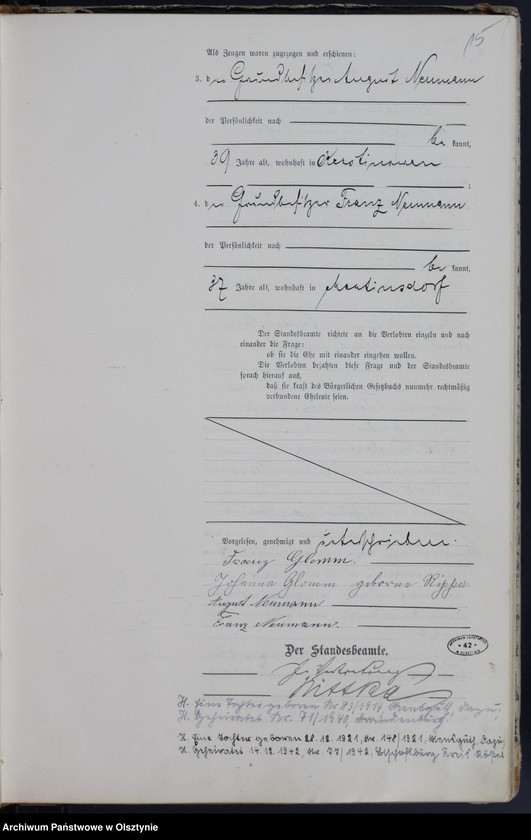 15
Als Zeugen waren zugezogen und erschienen:
3. der Grundbesitzer August Neumann
der Persönlichkeit nach
be kannt,
39 Jahre alt, wohnhaft in
;
4. der Grundbesitzer Franz Neumann
der Persönlichkeit nach
be kannt,
37 Jahre alt, wohnhaft in Martinsdorf
Der Standesbeamte richtete an die Verlobten einzeln und nach
einander die Frage:
ob sie die Ehe mit einander eingehen wollen.
Die Verlobten bejahten diese Frage und der Standesbeamte
sprach hierauf aus,
daß sie kraft des Bürgerlichen Gesetzbuchs nunmehr rechtmäßig
verbundene Eheleute seien.
Vorgelesen, genehmigt und unterschrieben.
Franz Glomm.
Johanna Glomm geborene
August Neumann
Franz Neumann.
Der Standesbeamte.
In Vertretung
42
H. Eine Tochter geboren Nr. 83/1914
H. Geheiratet Nr. 71/1940, Brandenburg.
H. Eine Tochter geboren 28. 12. 1921, Nr. 148/1921,
H. Geheiratet 14. 12. 1942, Nr. 77/1942, Bischofsburg Kreis Rößel
Archiwum Państwowe w Olsztynie